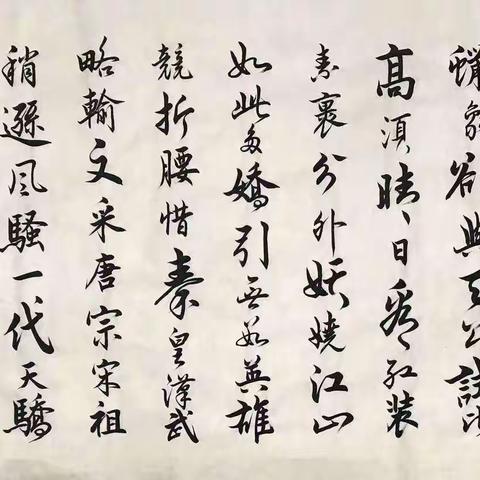 蠟象欲與天公試比
高須晴日看紅装
素裹分外妖嬈江山
如此多嬌引無數英雄
競折腰惜秦皇漢武
略輸文采唐宗宋祖
稍遜风騷一代天驕